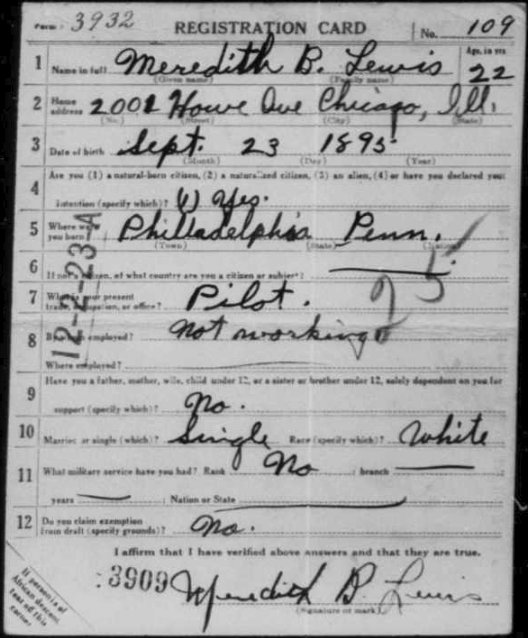 Form 3932 REGISTRATION CARD No. 109
1 Name in full Meredith B. Lewis Age, in yrs 22
(Given name) (Family name)
2 Home address 2001 Howe Ave Chicago, Ill.
(No.) (Street) (City) (State)
3 Date of birth Sept. 23 1895
(Month) (Day) (Year)
4 Are you (1) a natural-born citizen, (2) a naturalized citizen, (3) an alien, (4) or have you declared your
intention (specify which)? (1) Yes.
5 Where were you born? Philladelphia Penn.
(Town) (State) (Nation)
6 If not a citizen, of what country are you a citizen or subject?
7 What is your present trade, occupation, or office? Pilot. 95
8 By whom employed? Not working
Where employed?
12-2-23-A
9 Have you a father, mother, wife, child under 12, or a sister or brother under 12, solely dependent on you for
support (specify which)? No.
10 Married or single (which)? Single Race (specify which)? White
11 What military service have you had? Rank No branch
years Nation or State
12 Do you claim exemption from draft (specify grounds)? No.
I affirm that I have verified above answers and that they are true.
3909 Meredith B. Lewis
(Signature or mark)
If person is of
African descent,
tear off this
corner